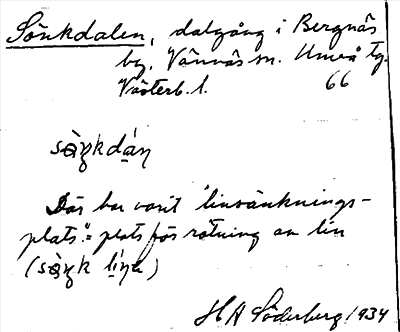 Sönkdalen, dalgång i Bergnäs
by, Vännäs sn. Umeå tg.
Västerb. l. 66
Där har varit "linsänknings-
plats" = plats för rötning av lin
H A Söderberg 1934